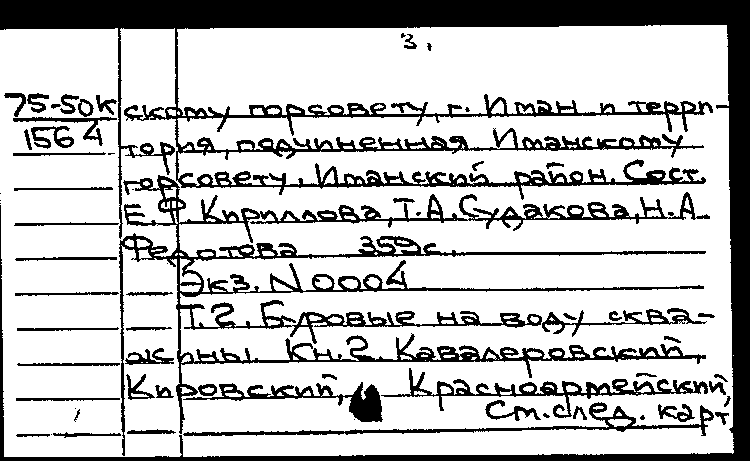 3.
75-50к скому горсовету, г. Иман и терри-
1564 тория, подчиненная Иманскому
горсовету, Иманский район. Сост.
Е.Ф. Кириллова, Т.А. Судакова, Н.А.
Федотова 359с.
Экз. N 0004
Т.2. Буровые на воду сква-
жины. Кн.2. Кавалеровский,
Кировский, Красноармейский,
См. след. карт.